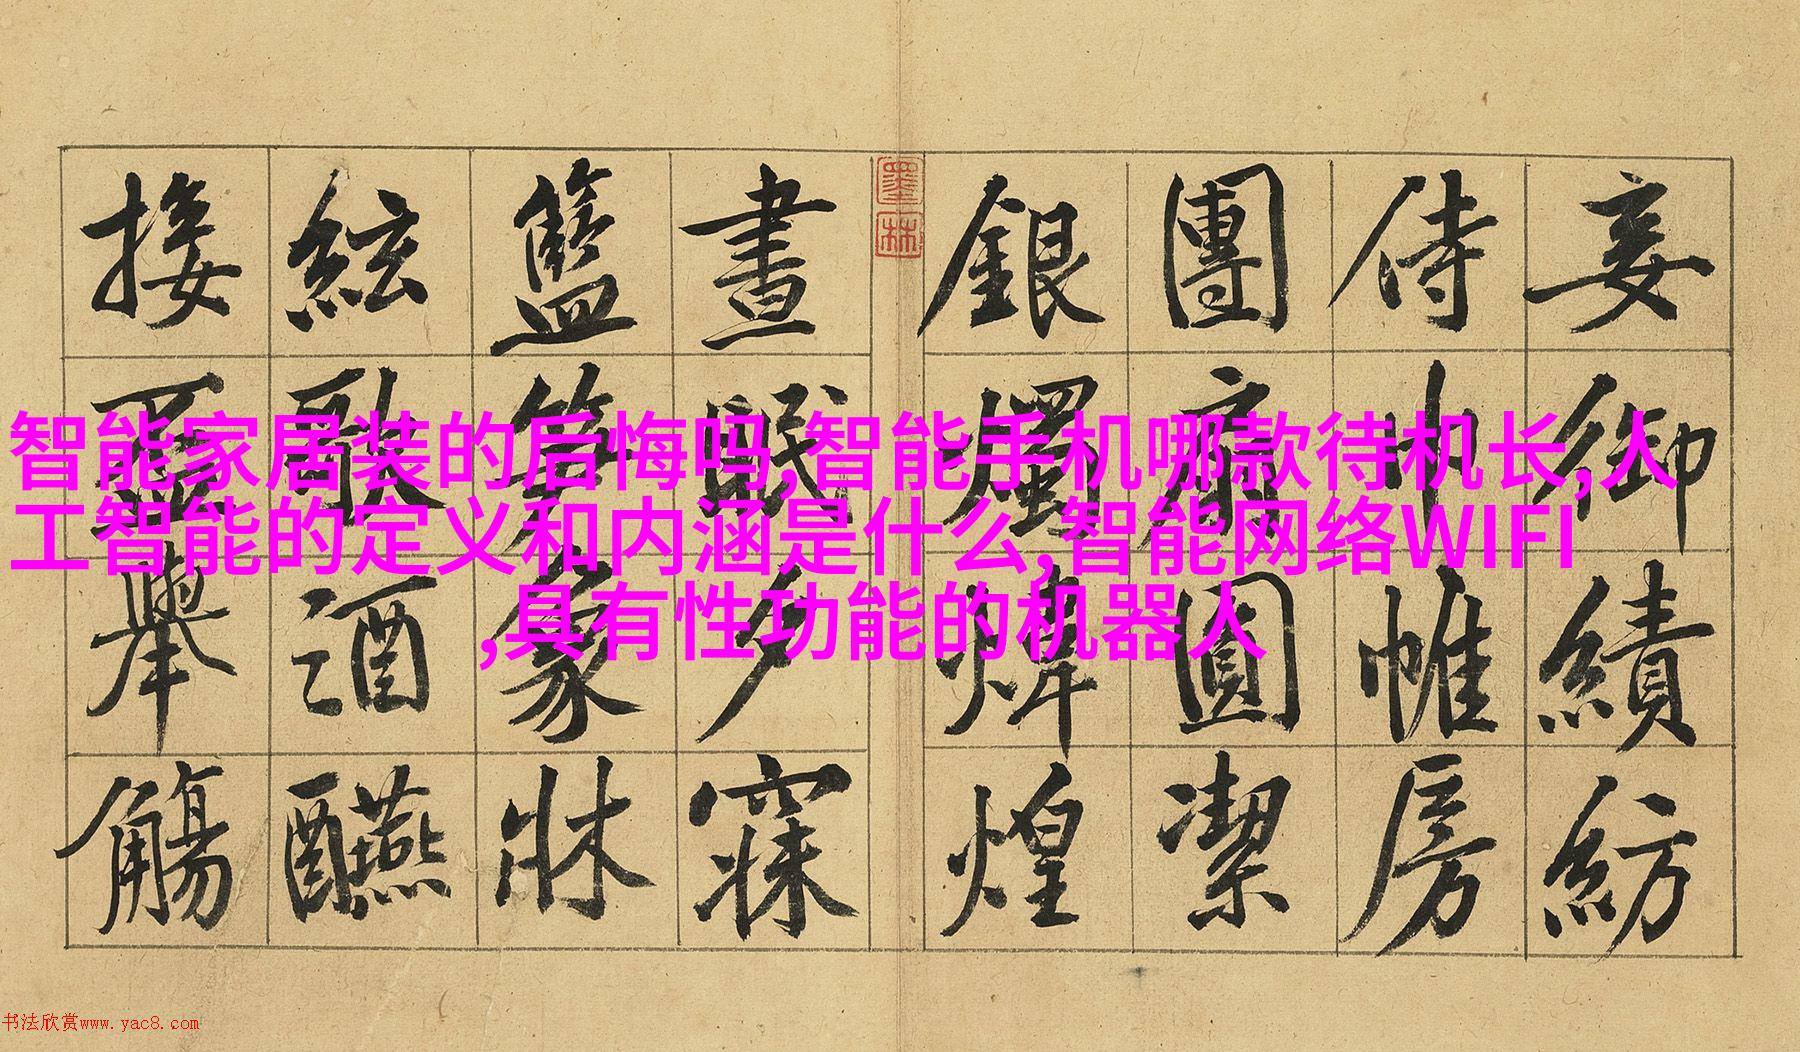 妾御績紡
侍巾帷房
團扇圓潔
銀燭煒煌
墨林
晝眠夕寐
籃笋象牀
絃歌酒醼
接盃舉觴
智能家居装的后悔吗,智能手机哪款待机长,人
工智能的定义和内涵是什么,智能网络WIFI
,具有性功能的机器人
书法欣赏www.yac8.com